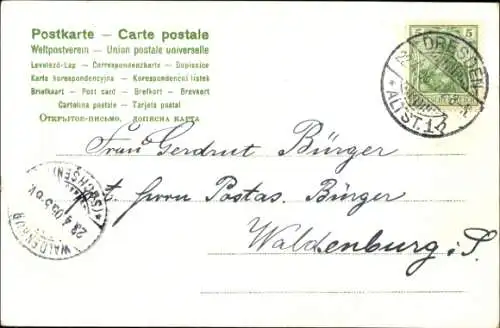 Postkarte — Carte postale
Weltpostverein — Union postale universelle
Levelező-Lap — Correspondenzkarte — Dopisnice
Karta korespondencyjna — Korespondenční lístek
Briefkaart — Post card — Brefkort — Brevkort
Cartolina postale — Tarjeta postal
Открытое-письмо, дописна карта
5 5
DRESDEN
ALTST. 14
Frau Gerdrut Bürger
Herrn Postas. Bürger
Waldenburg i. S.
WALDENBURG
(SACHSEN)